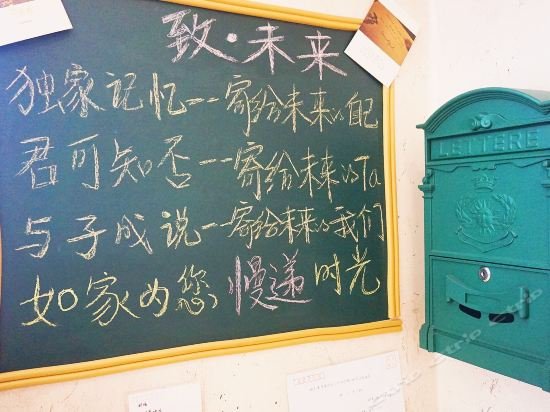 致·未来
独家记忆--寄给未来的自己
君可知否--寄给未来的Ta
与子成说--寄给未来的我们
如家为您慢递时光
LETTERE